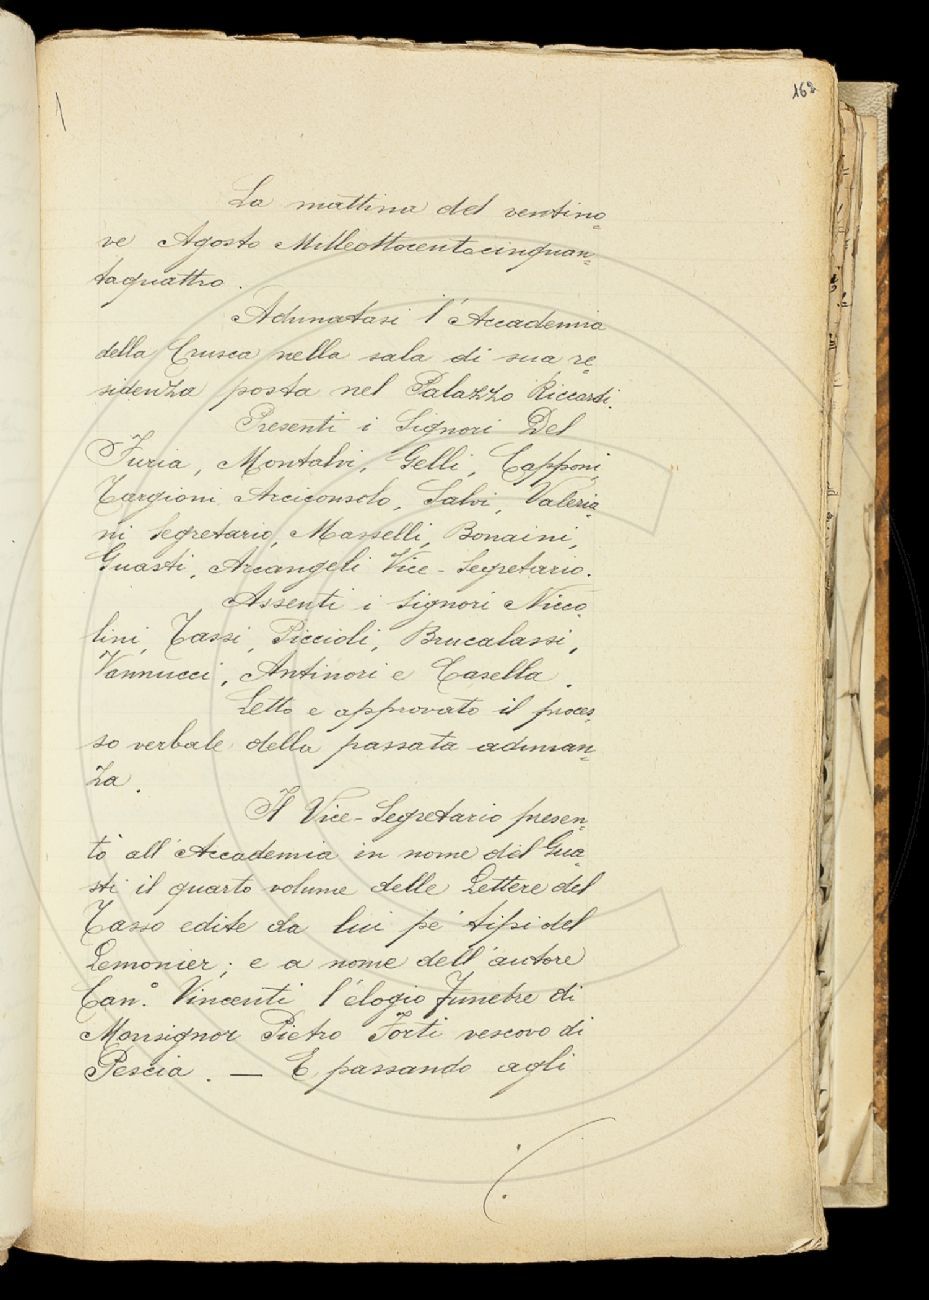 162
La mattina del ventino=
ve Agosto Milleottocentocinquan=
taquattro.
Adunatasi l'Accademia
della Crusca nella sala di sua re=
sidenza posta nel Palazzo Riccardi.
Presenti i Signori Del
Furia, Montalvi, Gelli, Capponi,
Targioni Arciconsolo, Salvi, Valeria=
ni Segretario, Masselli, Bonaini,
Guasti, Arcangeli Vice-Segretario.
Assenti i Signori Nicco=
lini, Tassi, Piccioli, Brucalassi,
Vannucci, Antinori e Casella.
Letto e approvato il proces=
so verbale della passata adunan=
za.
Il Vice-Segretario presen=
tò all'Accademia in nome del Gua=
sti il quarto volume delle Lettere del
Tasso edite da lui pe' tipi del
Lemonier; e a nome dell'autore
Can.° Vincenti l'élogio funebre di
Monsignor Pietro Forti vescovo di
Pescia. — E passando agli